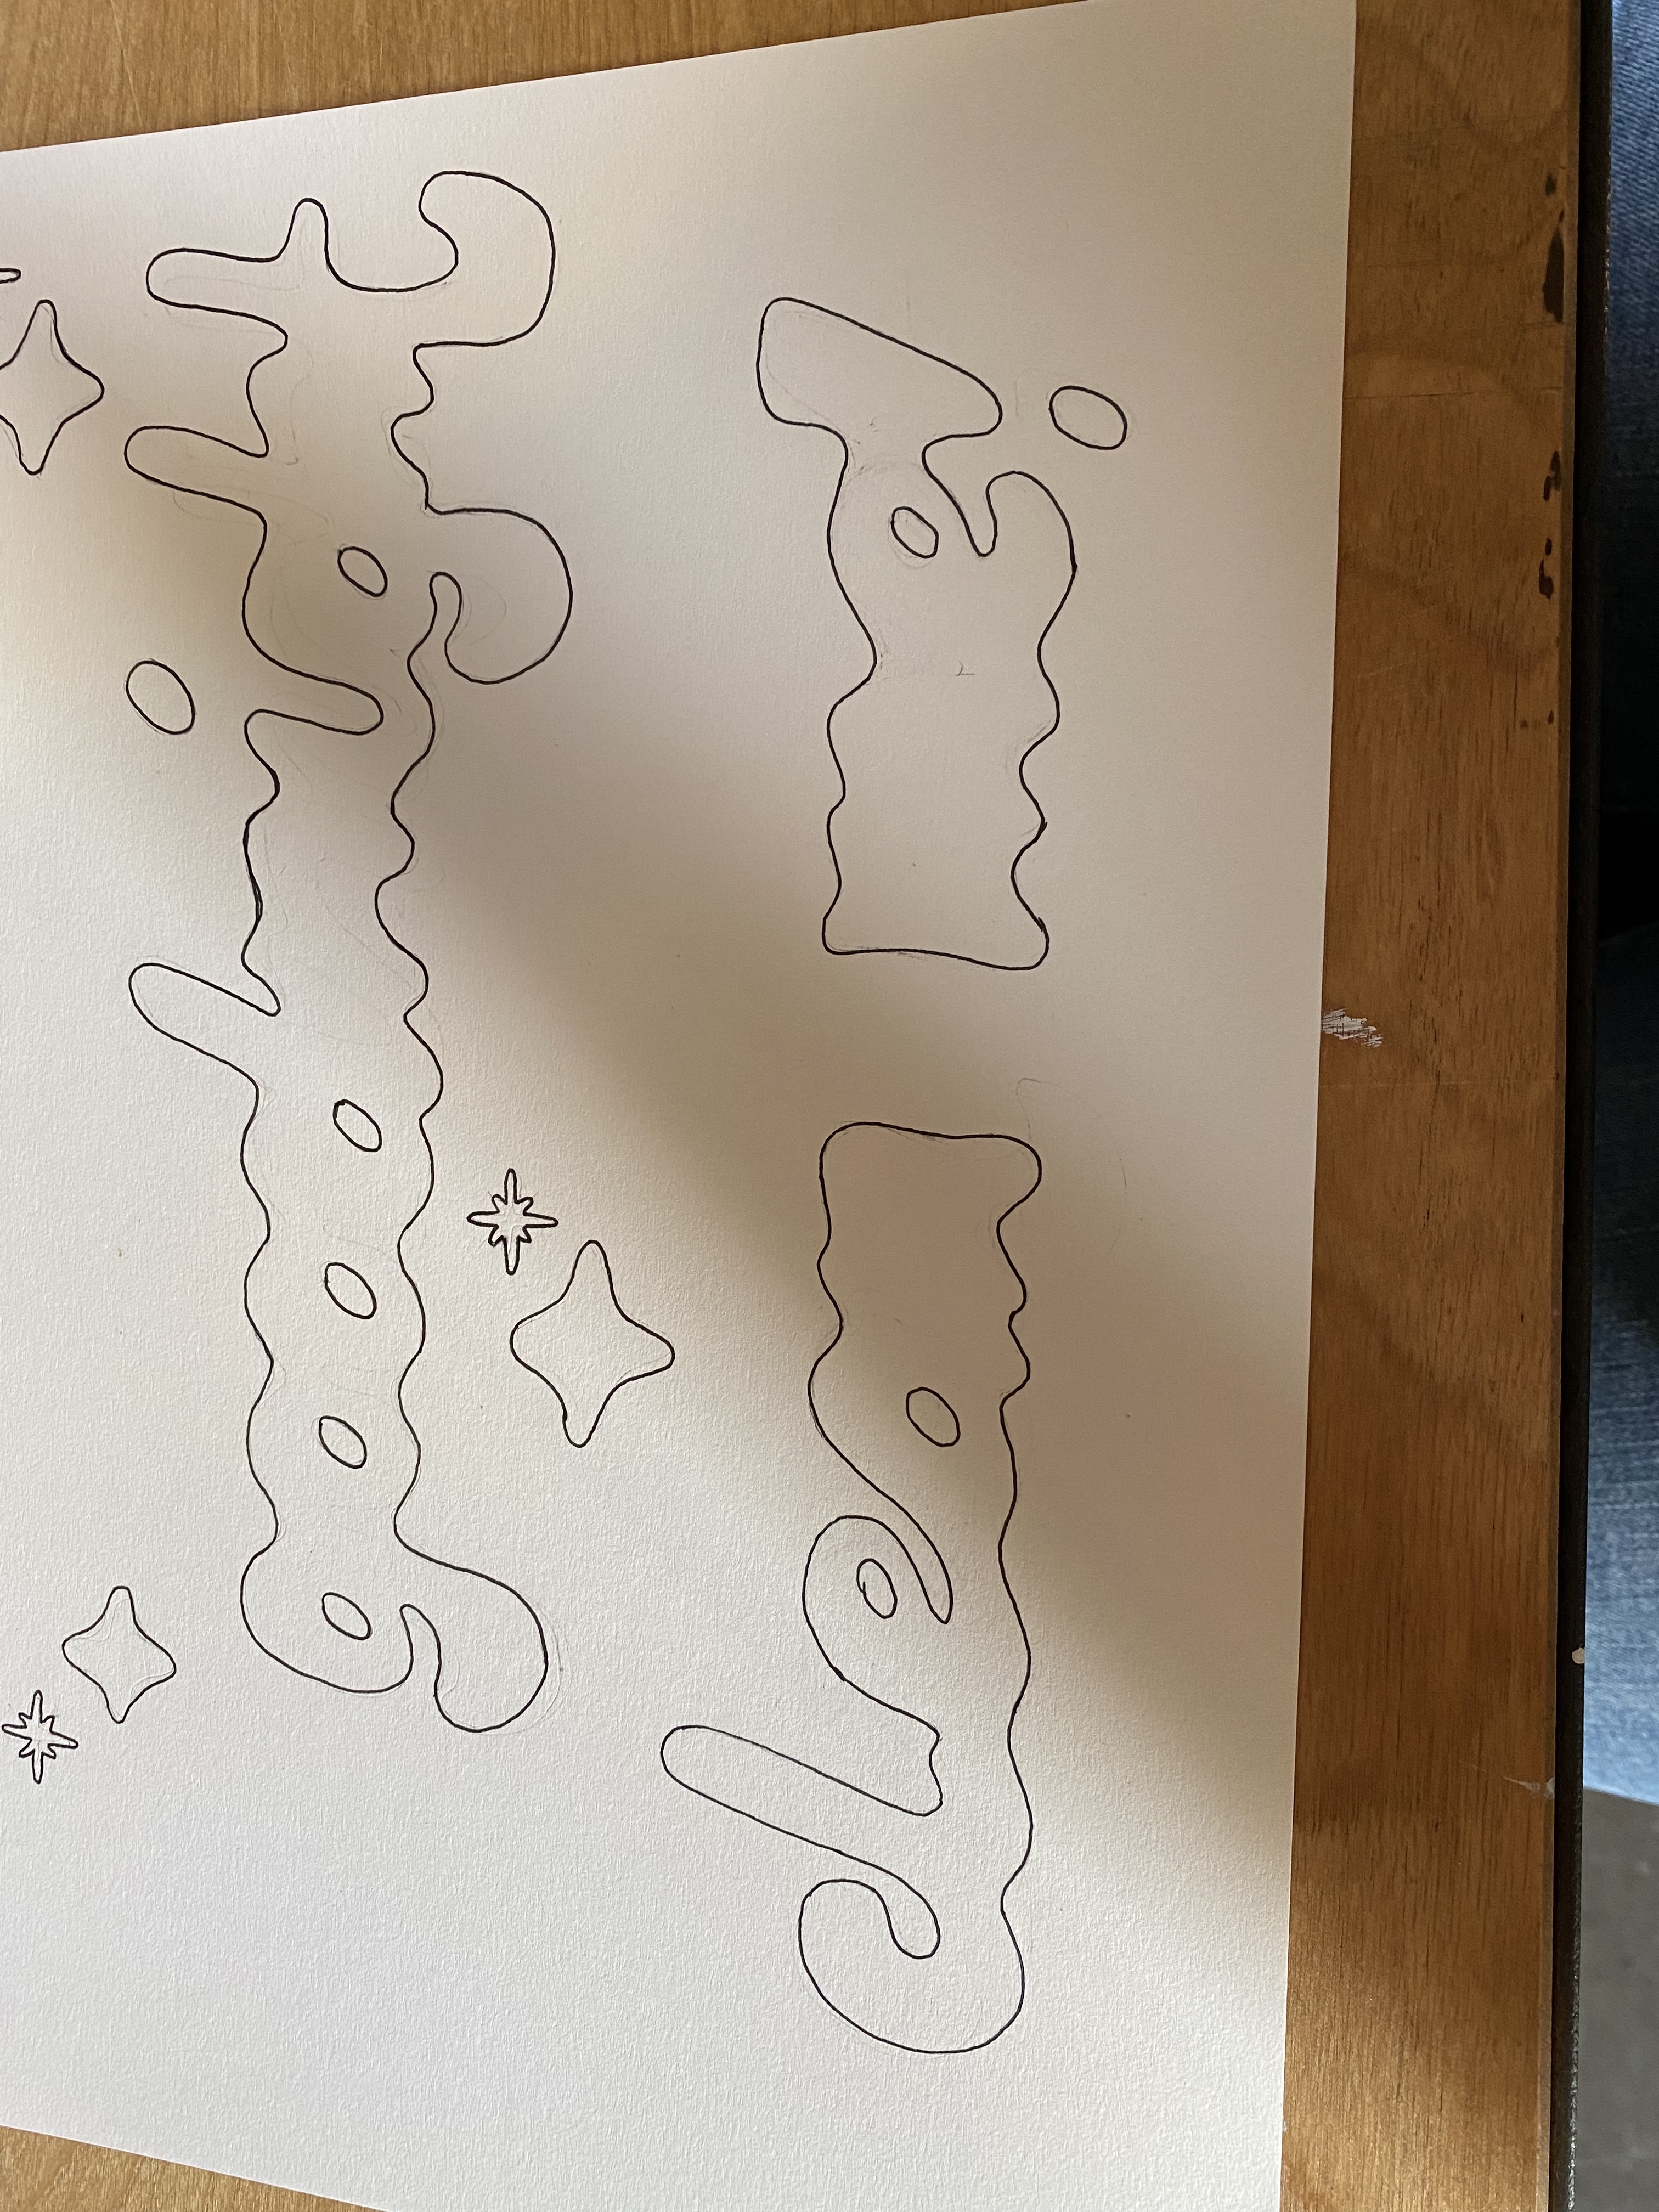 goodnight
dream me!